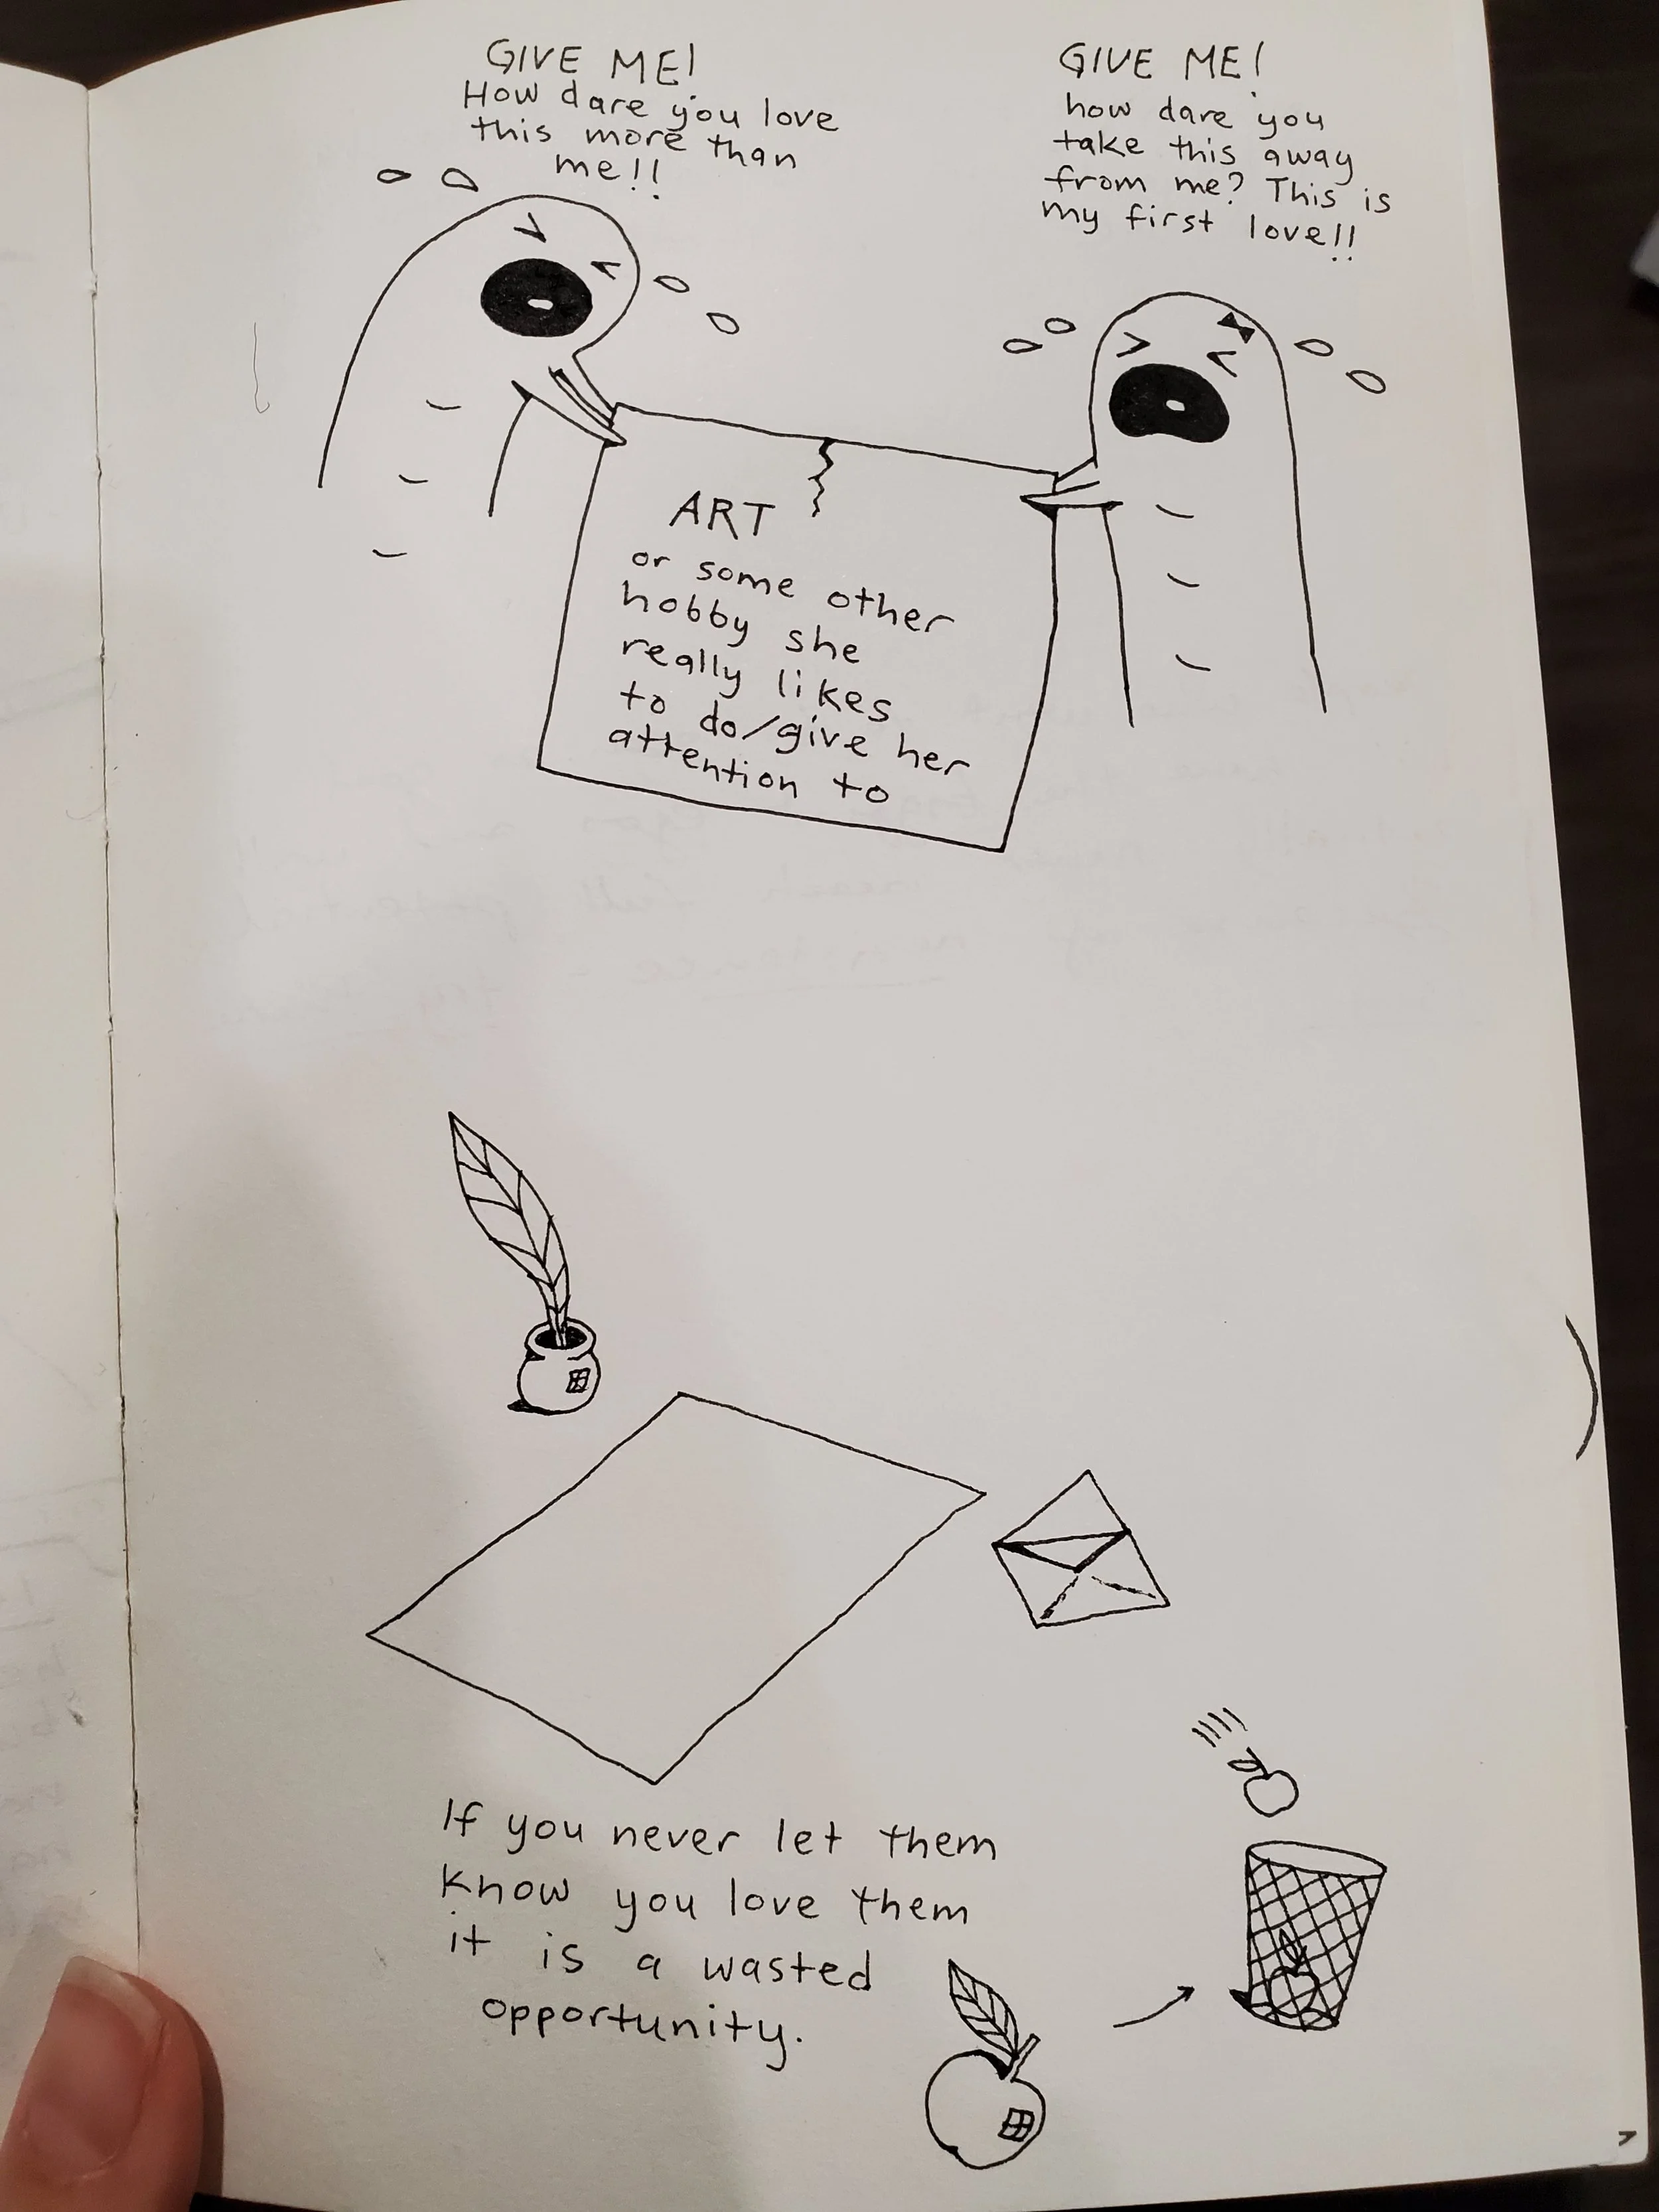 GIVE ME!
How dare you love
this more than
me!!
GIVE ME!
how dare you
take this away
from me? This is
my first love!!
ART
or some other
hobby she
really likes
to do/give her
attention to
If you never let them
know you love them
it is a wasted
opportunity.